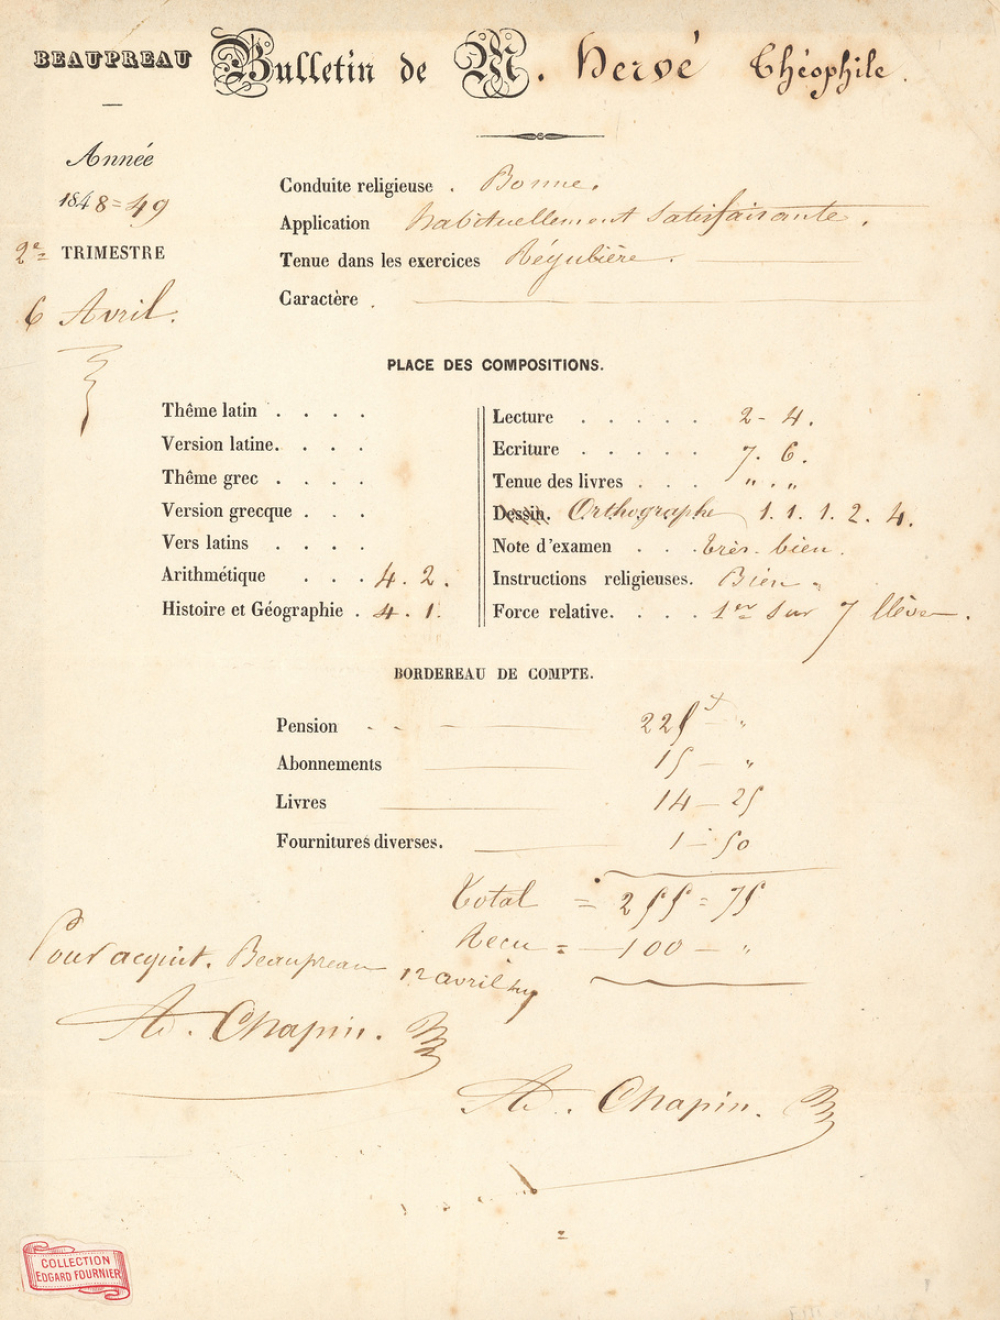 BEAUPREAU Bulletin de M. Hervé Théophile.
Année
1848=49
2e TRIMESTRE
6 Avril.
Conduite religieuse . Bonne.
Application habituellement Satisfaisante.
Tenue dans les exercices Régulière.
Caractère .
PLACE DES COMPOSITIONS.
Thême latin . . . .
Version latine. . . .
Thême grec . . . .
Version grecque . . .
Vers latins . . . .
Arithmétique . . . 4. 2.
Histoire et Géographie . 4. 1.
Lecture . . . . . 2- 4.
Ecriture . . . . . 7. 6.
Tenue des livres . . . " . "
Dessin. Orthographe 1. 1. 1. 2. 4.
Note d'examen . . . très-bien.
Instructions religieuses. Bien.
Force relative. . . . 1er Sur 7 Elèves.
BORDEREAU DE COMPTE.
Pension - - 225f - "
Abonnements 15 - "
Livres 14 - 25
Fournitures diverses. 1 - 50
Total = 255 = 75
Recu = 100 - "
Pour acquit. Beaupreau 12 avril
Ad. Chapin.
Ad. Chapin.
COLLECTION
EDGARD FOURNIER